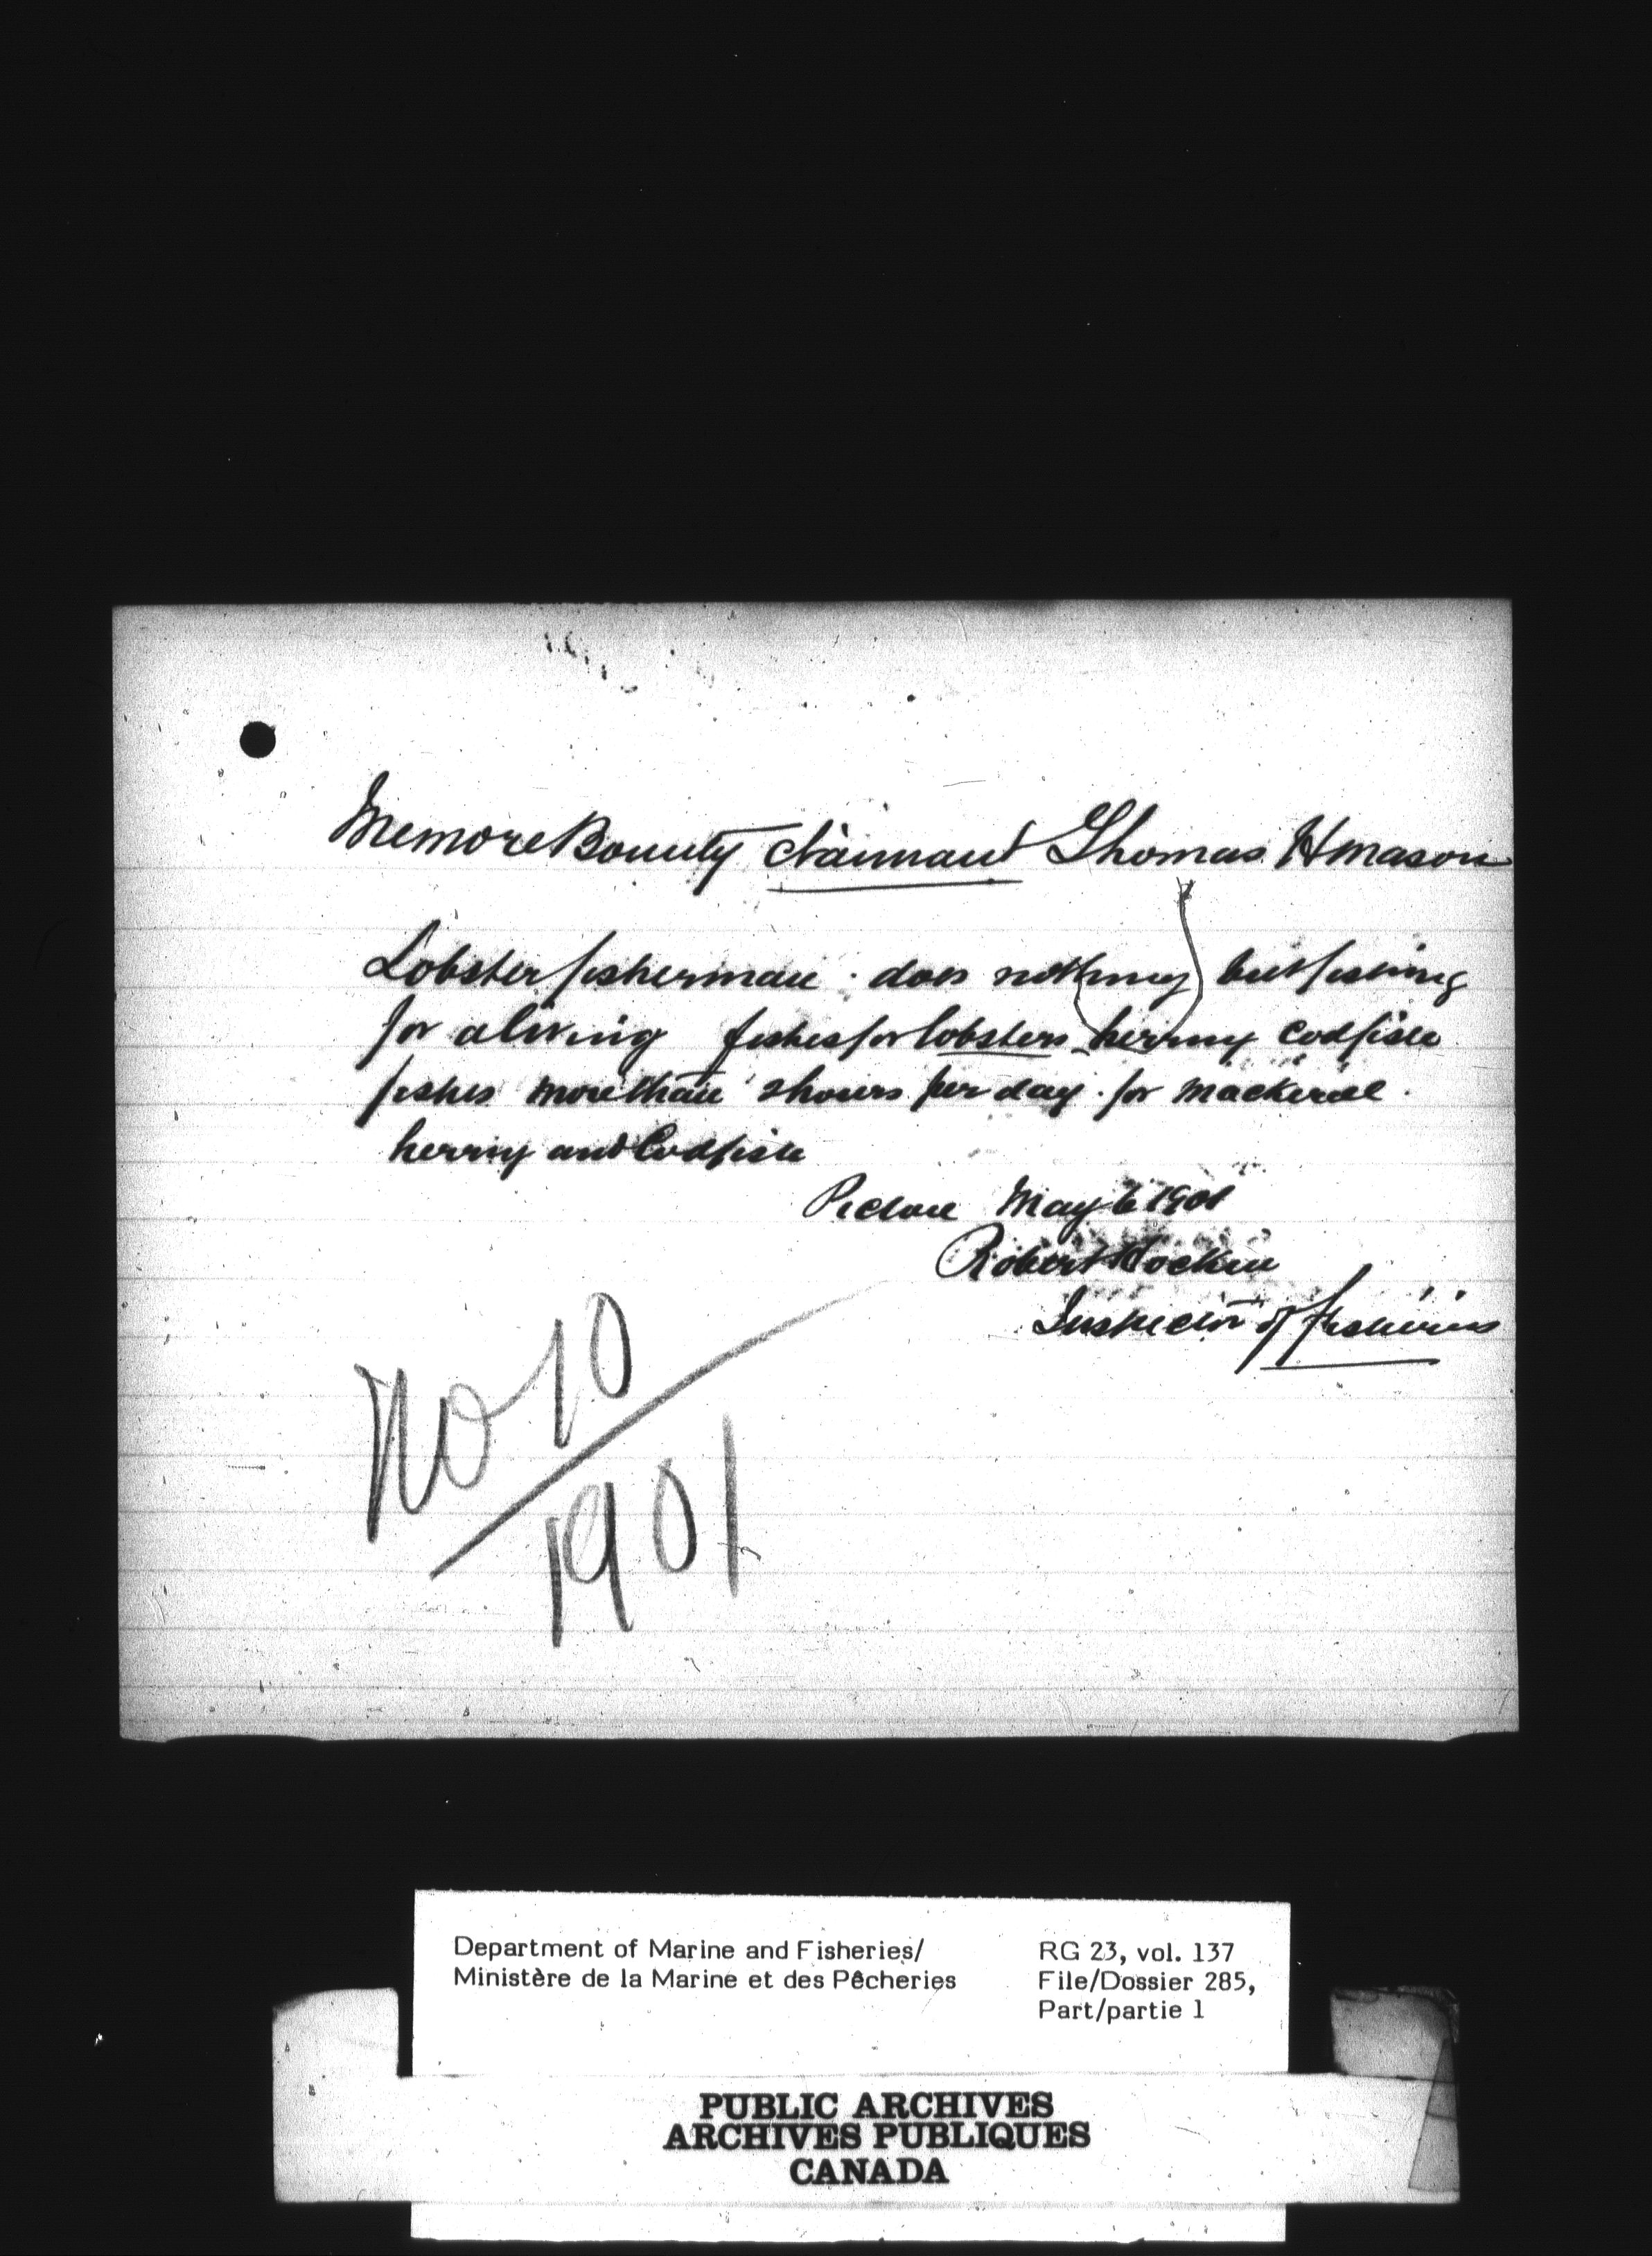 Memo re Bounty claimant Thomas H Mason
Lobster fisherman. does nothing but fishing
for a living fishes for lobsters herring codfish
fishes more than 3 hours per day. for mackerel.
herring and Codfish
Pictou May 6 1901
Robert Hockin
Inspector of fisheries
No 10
1901
Department of Marine and Fisheries/
Ministère de la Marine et des Pêcheries
RG 23, vol. 137
File/Dossier 285,
Part/partie 1
PUBLIC ARCHIVES
ARCHIVES PUBLIQUES
CANADA